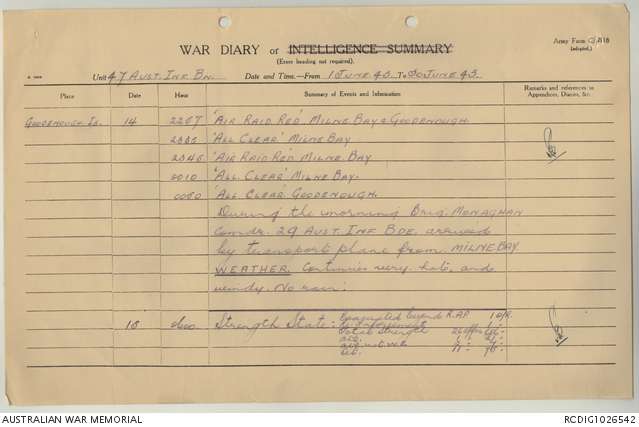 Army Form C. 2118
(adapted.)
WAR DIARY or INTELLIGENCE SUMMARY
(Erase heading not required).
Unit 47 AUST. INF. BN. Date and Time.—From 1 JUNE 43 To 30 JUNE 43.
Place Date Hour Summary of Events and Information Remarks and references to Appendices, Diaries, &c.
GOODENOUGH IS. 14 2207 'AIR RAID RED' MILNE BAY & GOODENOUGH.
'ALL CLEAR' MILNE BAY
'AIR RAID RED' MILNE BAY
'ALL CLEAR' MILNE BAY.
'ALL CLEAR' GOODENOUGH.
During the morning Brig. MONAGHAN
Comdr. 29 AUST. INF BDE. arrived
by transport plane from MILNE BAY
WEATHER. Continues very hot, and
windy. No rain.
Strength State: Evacuated beyond R.A.P.
Total Strength
AUSTRALIAN WAR MEMORIAL
RCDIG1026542